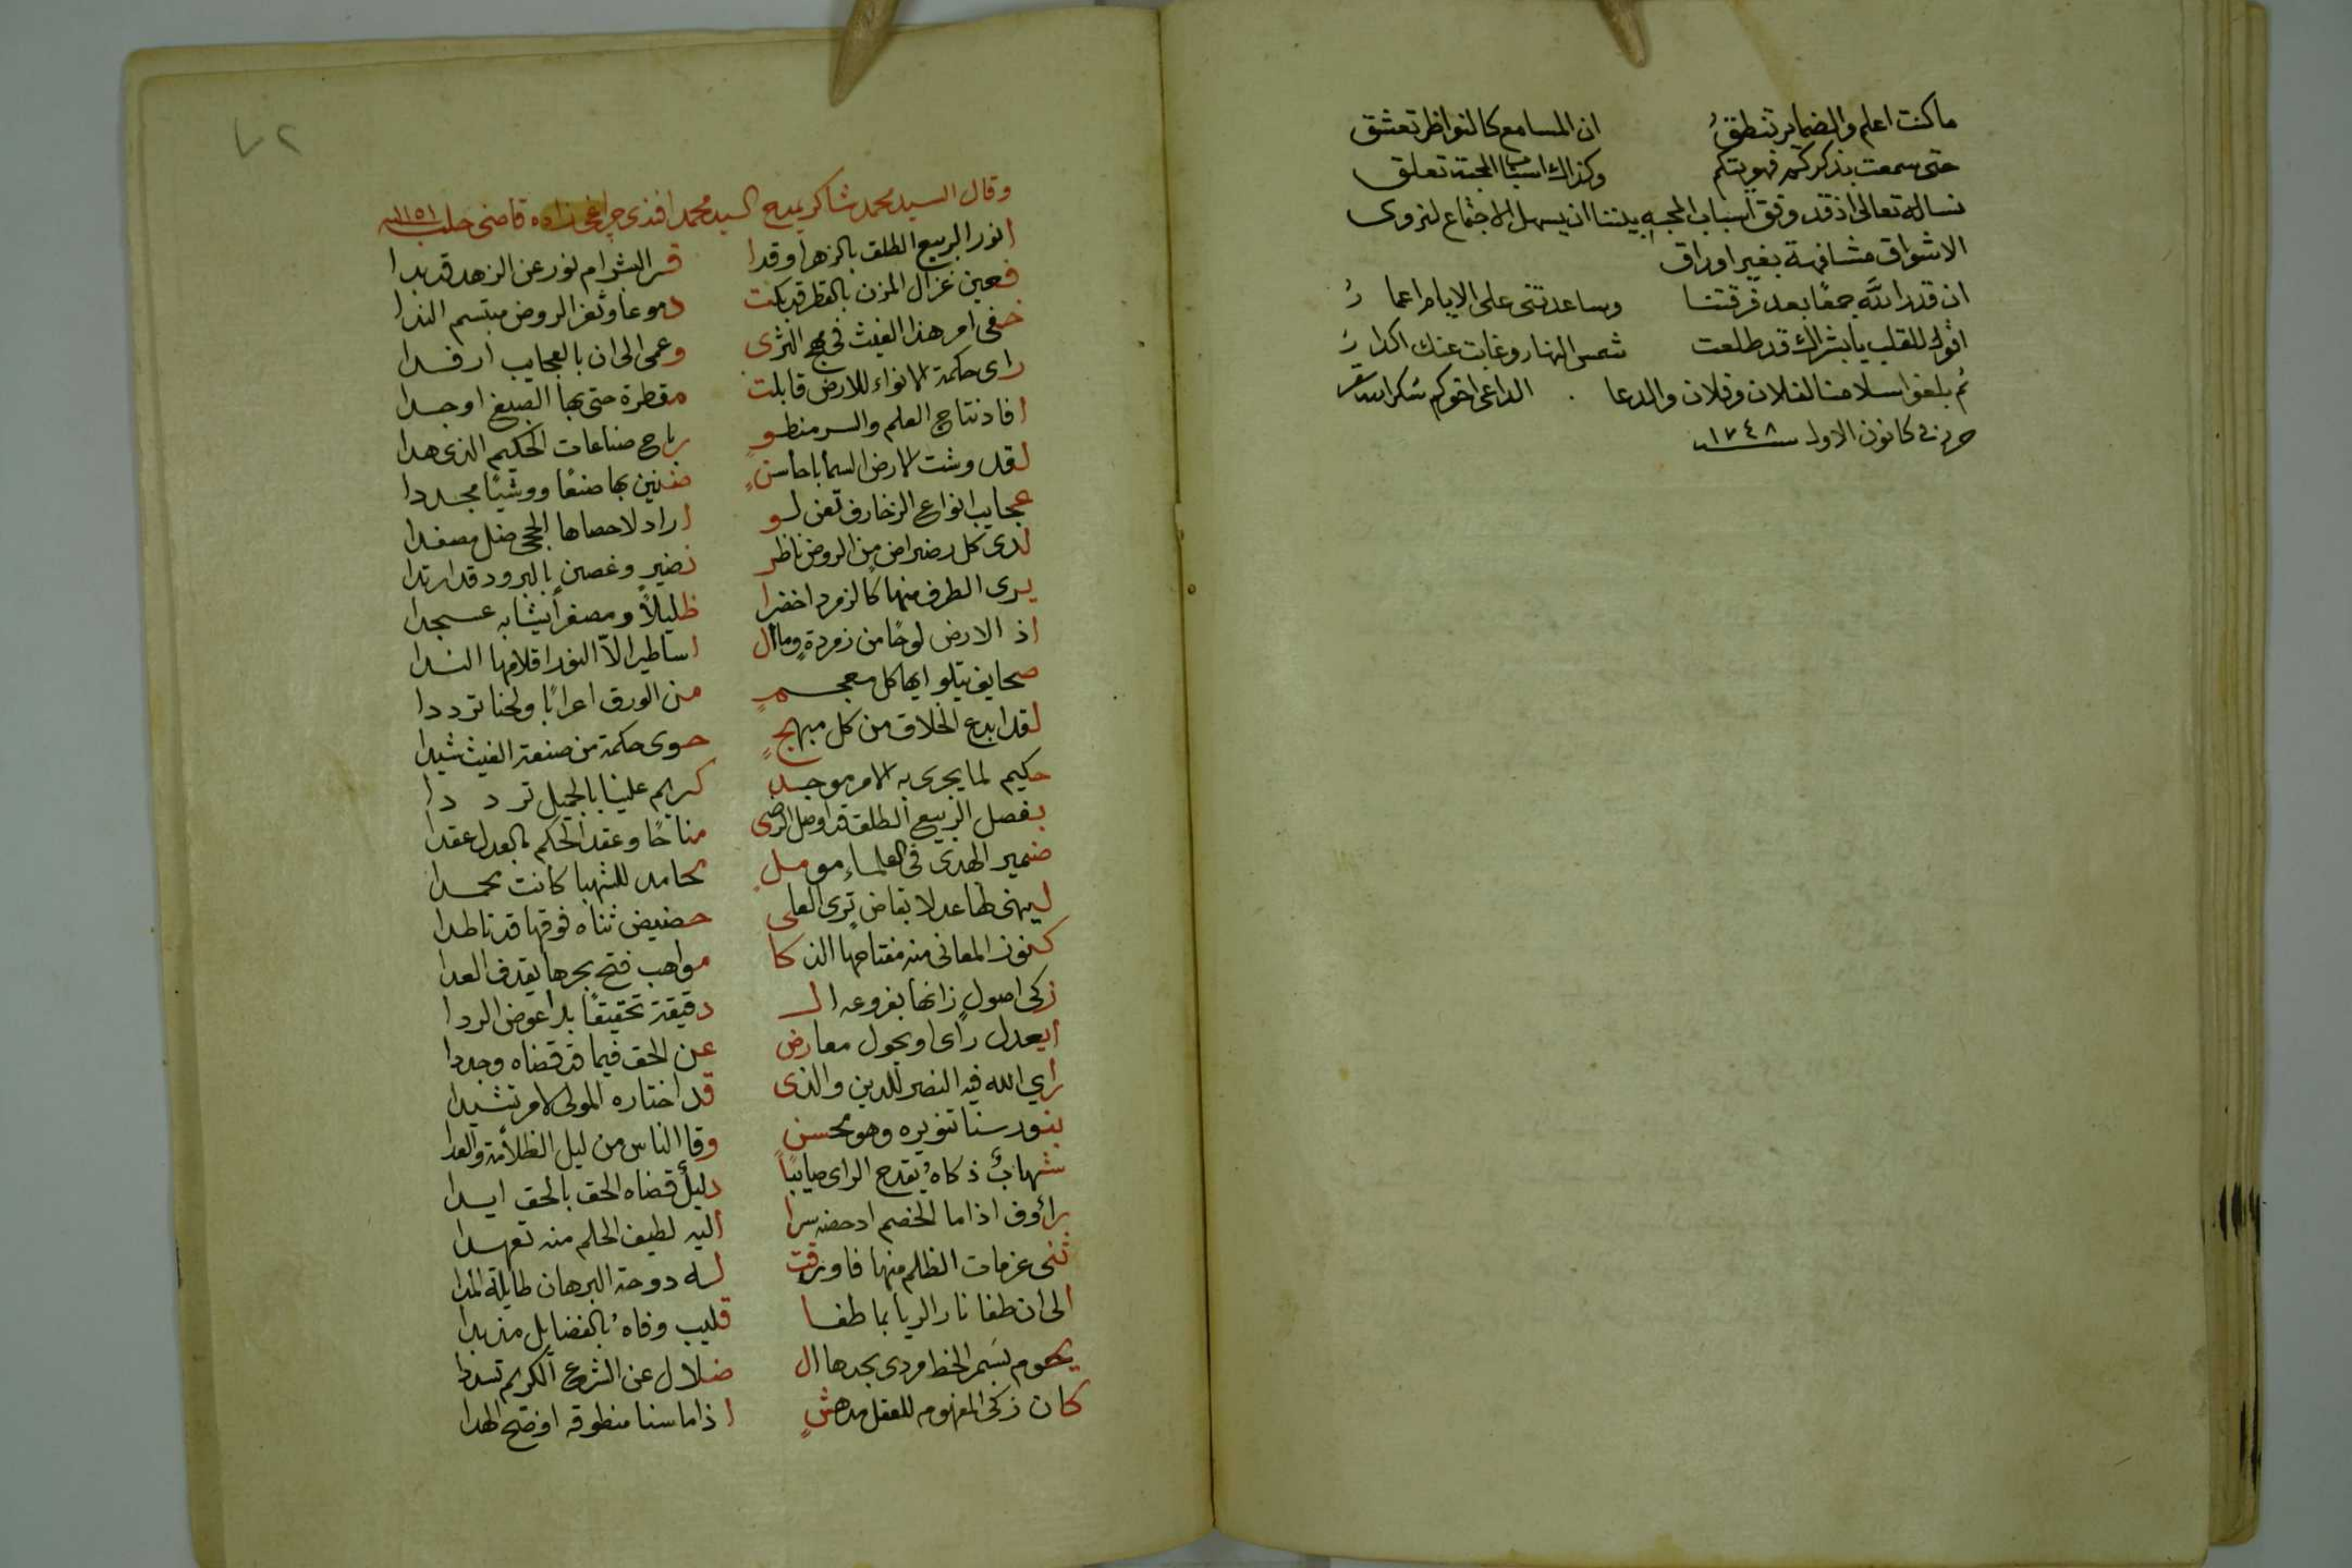 ما كنت اعلم والضماير تنطق ان المسامع كالنواظر تعشق
حتى سمعت بذكركم فهويتكم وكذاك اسباب المحبة تعلق
نساله تعالى اذ قد وفق اسباب المحبه بيننا ان يسهل الاجتماع لنروى
الاشواق مشافهة بغير اوراق
ان قدر الله جمعًا بعد فرقتنا وساعدتنى على الايام اعما رُ
اقول للقلب يا بشراك قد طلعت شمس النهار وغابت عنك اكدا رُ
ثم بلغوا سلامنا لفلان وفلان والدعا . الداعى اخوكم شكرالله
حرر فى كانون الاول سنة ١٧٤٨
٧٢
وقال السيد محمد شاكر يمدح السيد محمد افندى چراغى زاده قاضى حلب سنة ١١٥١
انور الربيع الطلق بالزهر اوقدا قر البشر ام نور عن الزهد قد بدا
فعين غزال المزن بالقطر قد بكت دموعا وثغر الروض مبتسم الندا
خفى امر هذا الغيث فى الثرى وعمى الى ان بالعجايب ارفدا
راى حكمة الانواء للارض قابلت مقطرة حتى بها الصبغ اوجدا
افاد نتاج العلم والسر منطو باح صناعات الحكيم الذى هدا
لقد وشت الارض السما باحأسنٍ صنعًا ووشيًا مجددا
عجايب انواع الزخارف تغن لو اراد لاحصاها الحجى ضل مصفدا
لدى كل من الروض ناظر نضير وغصن بالبرود قد ارتدا
يرى الطرف منها كالزمرد اخضرا ظليلاً ومصفراً يشابه عسجدا
اذ الارض لوحًا من زمردة وما ال اساطير الاّ النور اقلامها الندا
صحايف يتلو ايها كل معجمٍ من الورق اعرابًا ولحنا ترددا
لقد ابدع الخلاق من كل مبهجٍ حوى حكمة من صنعة الغيث شيدا
حكيم لما يجرى به الامر موجد كريم علينا بالجميل تر د دا
بفصل الربيع الطلق قد اوصل الرضى مناحًا وعقد الحكم بالعدل عقدا
ضمير الهدى فى العلماء مومل محامد للشهبا كانت محمدا
ليهنى لها عدلا بقاض ترى العلى حضيض ثناه فوقها قد تاطدا
كنوز المعانى منه مفتاحها الذكا مواهب فتح بحرها يقدف العدا
زكى اصول زانها بفروعه ال دقيقة تحقيقًا بدا عوض الردا
ايعدل رأى او يحول معارض عن الحق فيما قد قضاه وجددا
رأي الله فيه النصر للدين والذى قد اختاره المولى لامر تشيدا
بنور سنا تنويره وهو محسن وقا الناس من ليل الظلامة والعدا
شهابٌ ذكاه يقدح الراى صايبًا دليل قضاه الحق بالحق ايدا
رأوف اذا ما الخصم ادحضه سرا اليه لطيف الحلم منه تعهدا
ثنى عزمات الظلم منها فاورقت له دوحة البرهان طايلة المدا
الى ان طفا نار الريا بما طفا قليب وفاه بالفضايل مزبدا
يحوم بسمر الخط مردى بحدها ال ضلال عن الشرع الكريم تسددا
كان زكى المفهوم للعقل مدهشٍ اذا ما سنا منطوقه اوضح الهدا